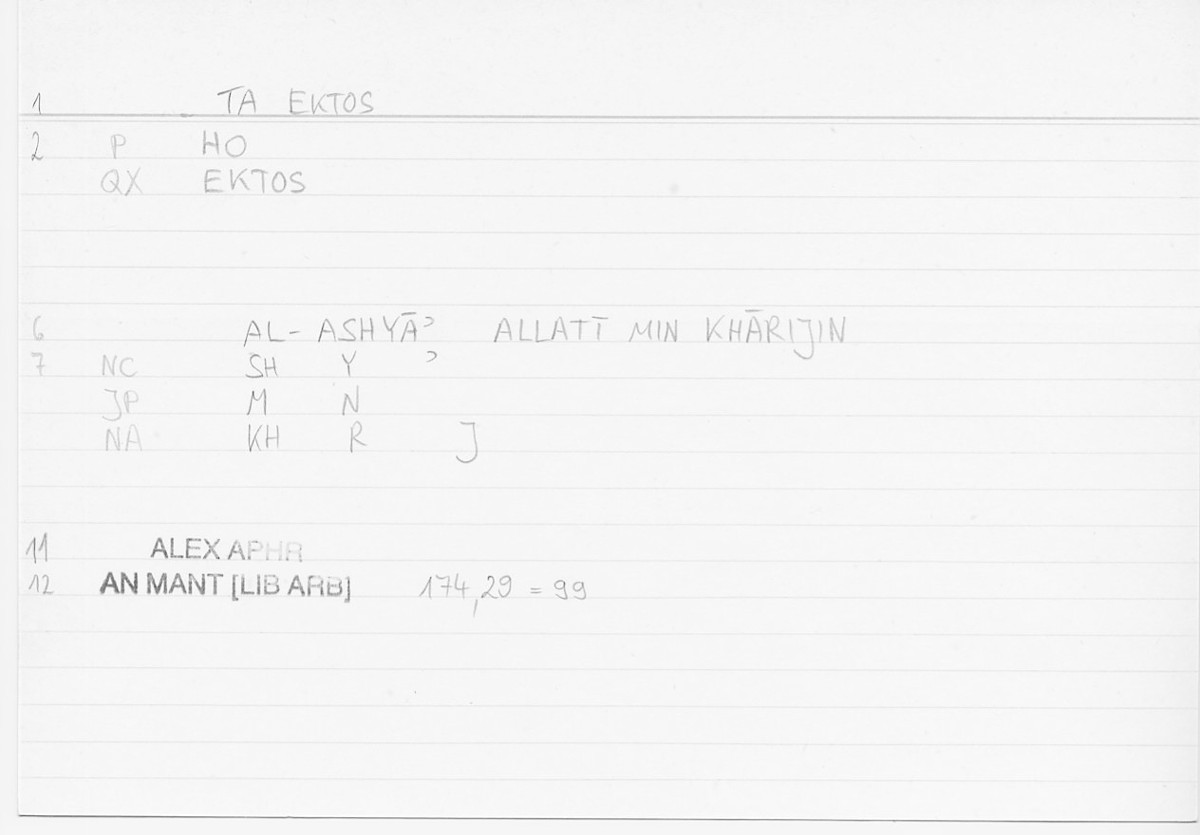 1 TA EKTOS
2 P HO
QX EKTOS
6 AL-ASHYĀʾ ALLATĪ MIN KHĀRIJIN
7 NC SH Y ʾ
JP M N
NA KH R J
11 ALEX APHR
12 AN MANT [LIB ARB] 174,29 = 99